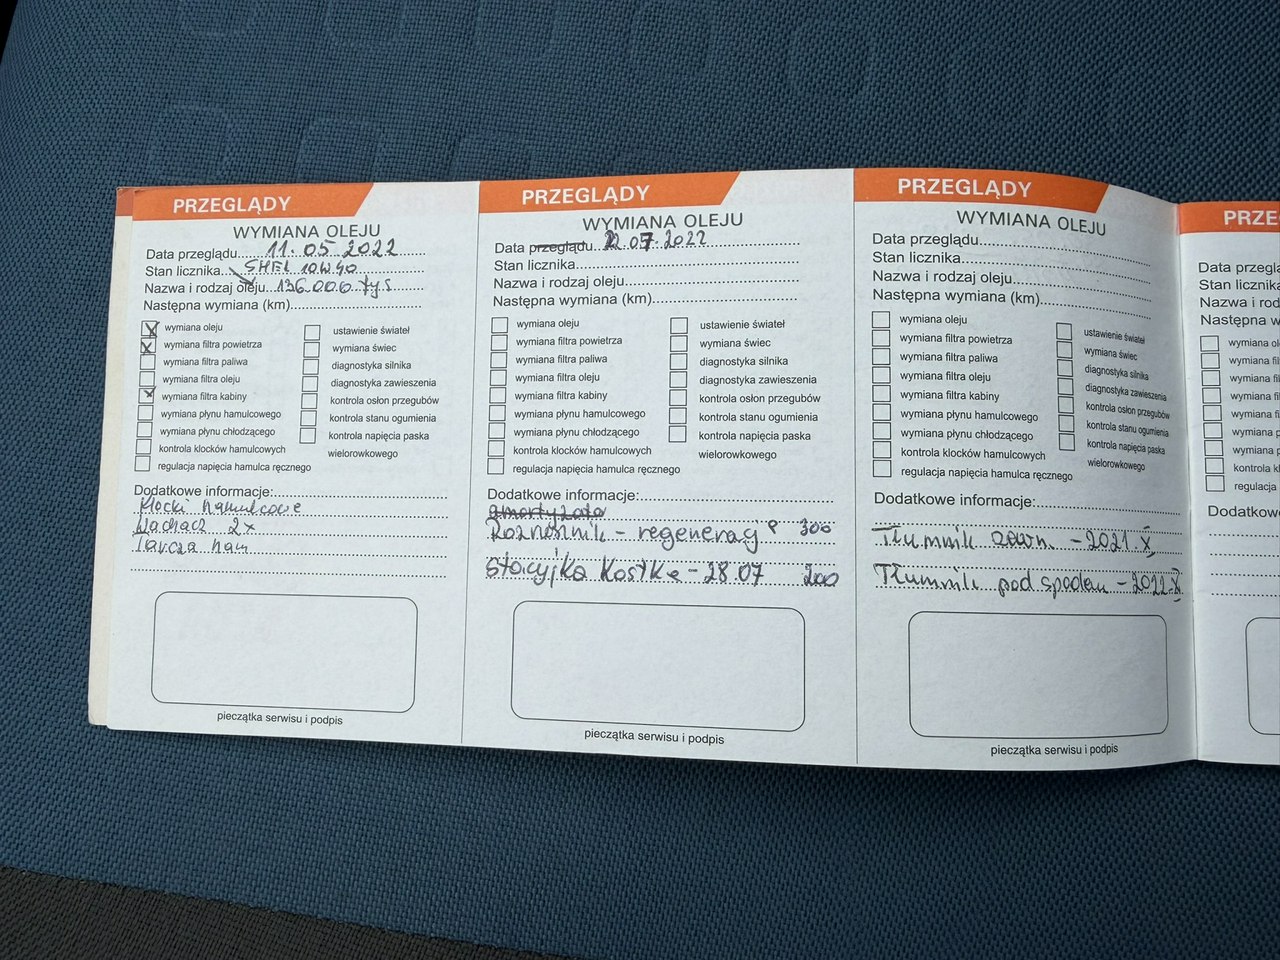 PRZEGLĄDY
WYMIANA OLEJU
Data przeglądu 11.05 2022
Stan licznika SHEL 10W40
Nazwa i rodzaj oleju 136.000 tyś
Następna wymiana (km)
wymiana oleju
wymiana filtra powietrza
wymiana filtra paliwa
wymiana filtru oleju
wymiana filtra kabiny
wymiana płynu hamulcowego
wymiana płynu chłodzącego
kontrola klocków hamulcowych
regulacja napięcia hamulca ręcznego
ustawienie świateł
wymiana świec
diagnostyka silnika
diagnostyka zawieszenia
kontrola osłon przegubów
kontrola stanu ogumienia
kontrola napięcia paska
wielorowkowego
Dodatkowe informacje:
Klocki hamulcowe
Wachacz 2x
Tarcza ham
pieczątka serwisu i podpis
PRZEGLĄDY
WYMIANA OLEJU
Data przeglądu 22.07.2022
Stan licznika
Nazwa i rodzaj oleju
Następna wymiana (km)
wymiana oleju
wymiana filtra powietrza
wymiana filtra paliwa
wymiana filtru oleju
wymiana filtra kabiny
wymiana płynu hamulcowego
wymiana płynu chłodzącego
kontrola klocków hamulcowych
regulacja napięcia hamulca ręcznego
ustawienie świateł
wymiana świec
diagnostyka silnika
diagnostyka zawieszenia
kontrola osłon przegubów
kontrola stanu ogumienia
kontrola napięcia paska
wielorowkowego
Dodatkowe informacje:
Roznosnik - regenerag 300
Stacyjka kostka - 28.07 200
pieczątka serwisu i podpis
PRZEGLĄDY
WYMIANA OLEJU
Data przeglądu
Stan licznika
Nazwa i rodzaj oleju
Następna wymiana (km)
wymiana oleju
wymiana filtra powietrza
wymiana filtra paliwa
wymiana filtru oleju
wymiana filtra kabiny
wymiana płynu hamulcowego
wymiana płynu chłodzącego
kontrola klocków hamulcowych
regulacja napięcia hamulca ręcznego
ustawienie świateł
wymiana świec
diagnostyka silnika
diagnostyka zawieszenia
kontrola osłon przegubów
kontrola stanu ogumienia
kontrola napięcia paska
wielorowkowego
Dodatkowe informacje:
Tłumnik - 2021 X
Tłumnik pod spodem - 2022 X
pieczątka serwisu i podpis
PRZE
Data przeglą
Stan liczni
Nazwa i rod
Następna w
wymiana ol
wymiana fil
wymiana fil
wymiana fil
wymiana fi
wymiana p
wymiana p
kontrola kl
regulacja
Dodatkow